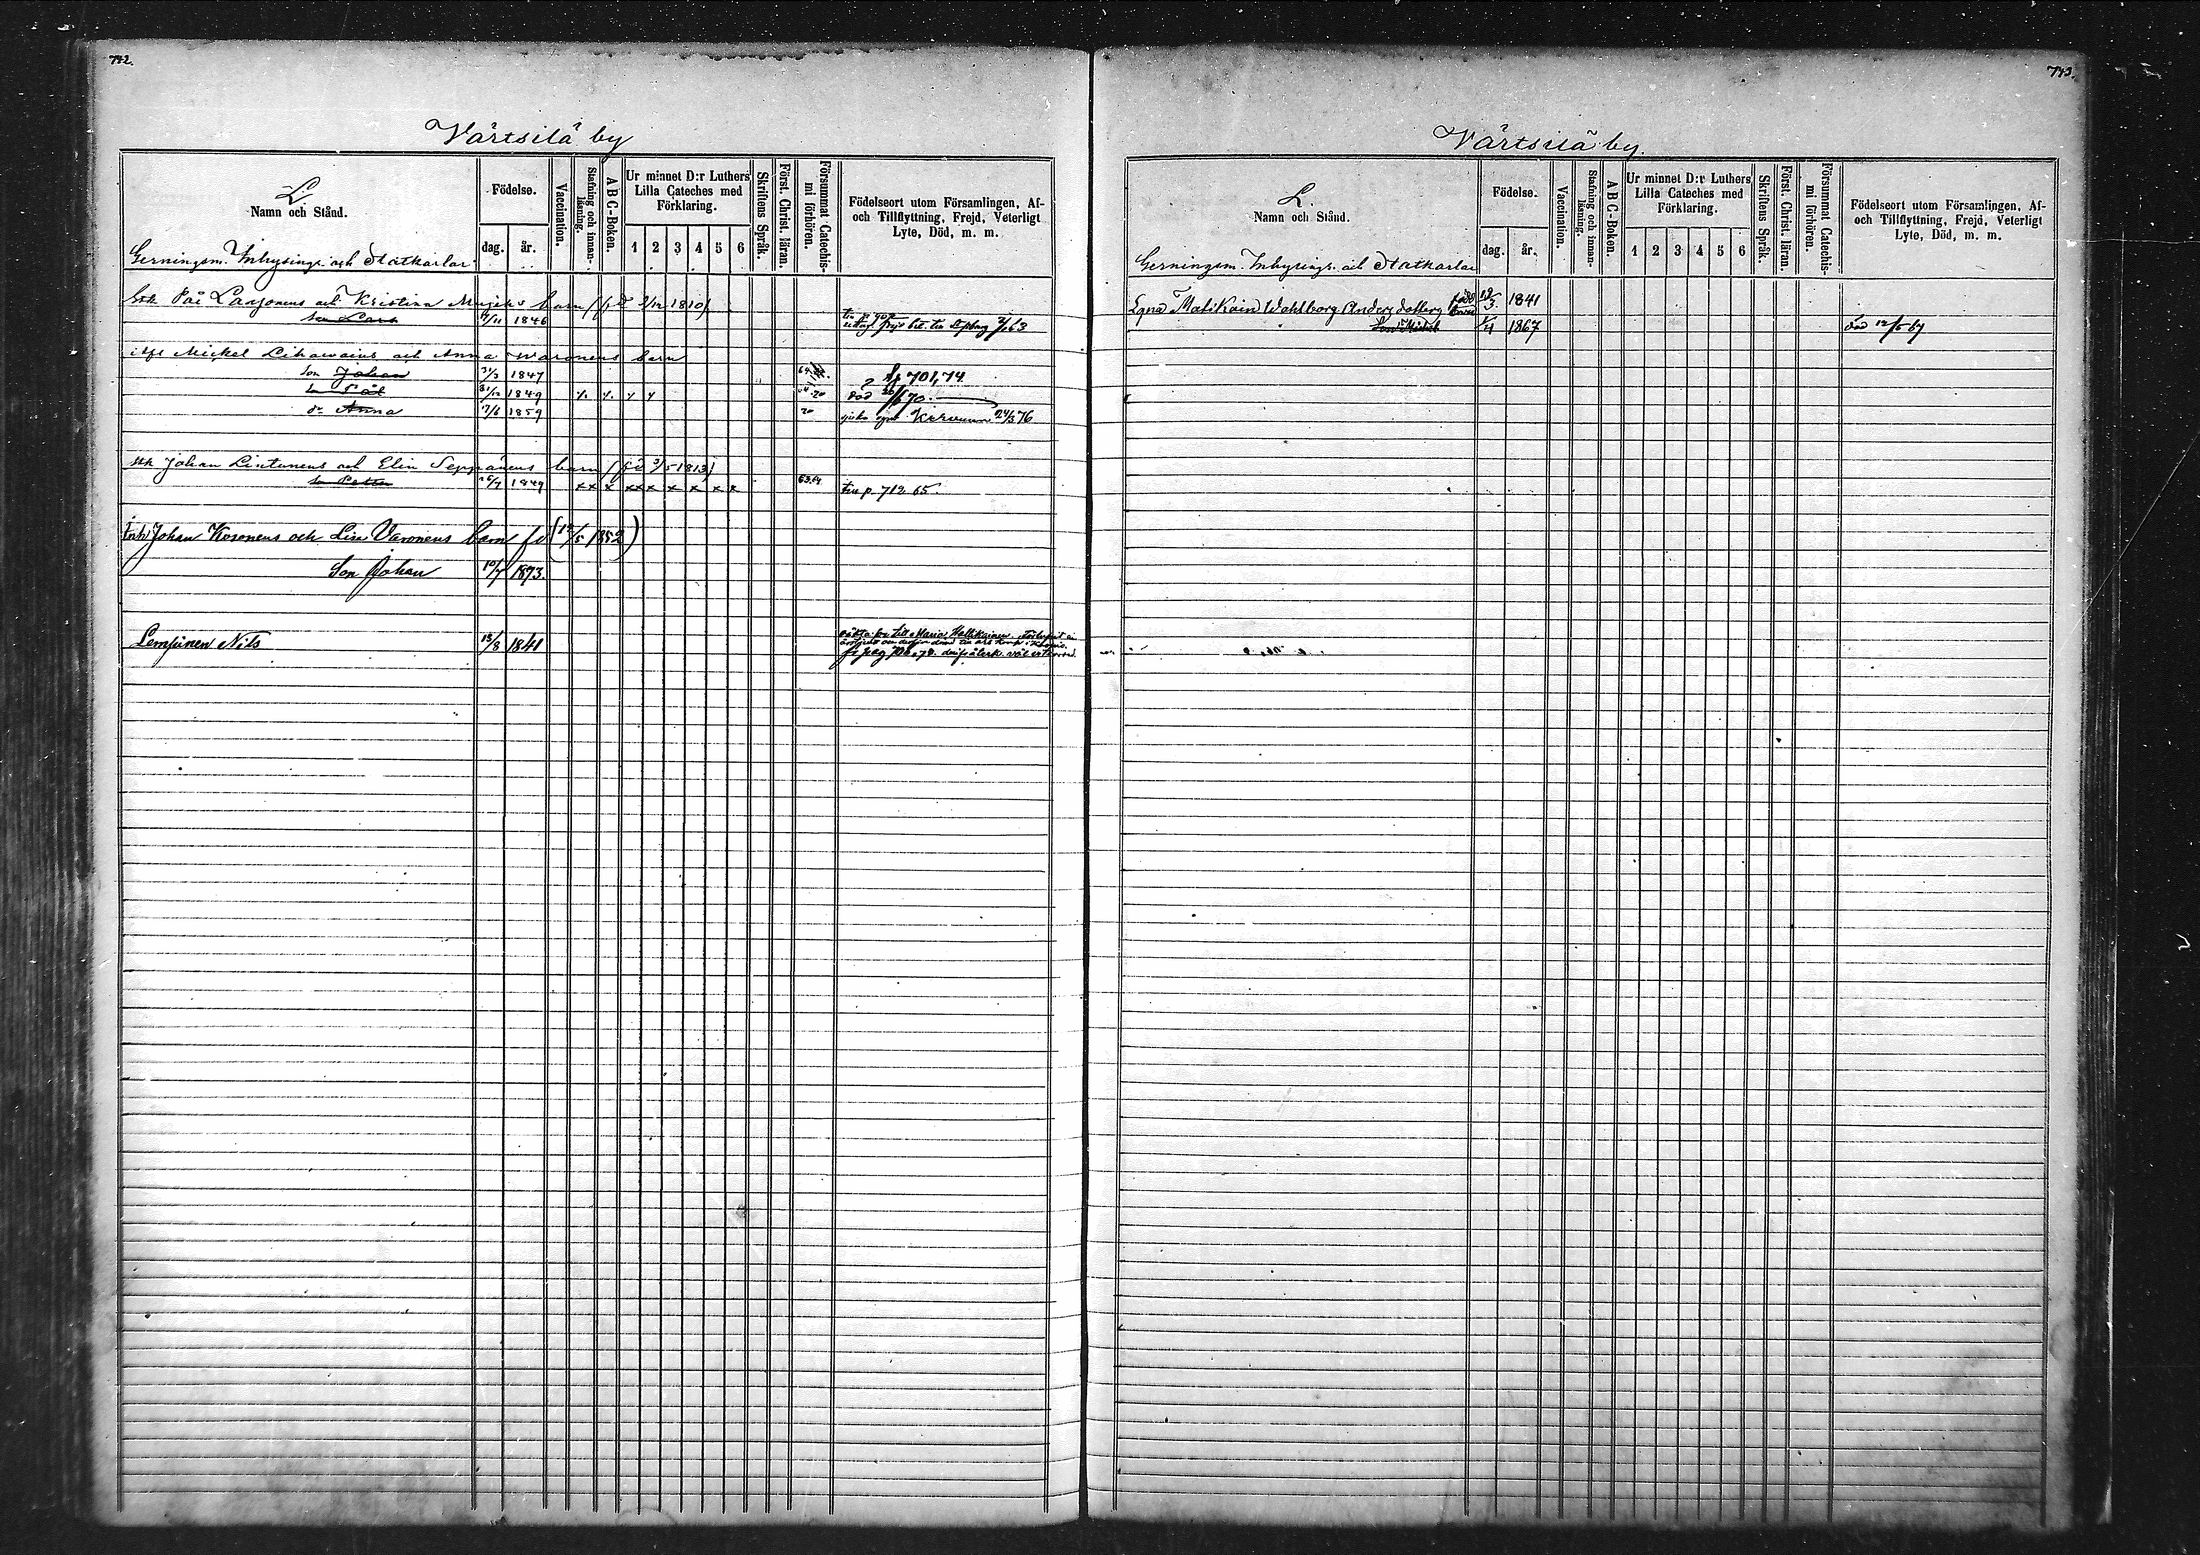 742.
Värtsilä by
L.
Namn och Stånd.
Födelse.
dag.
år.
Vaccination.
Stafning och innanläsning.
A B C-Boken.
Ur minnet D:r Luthers
Lilla Cateches med
Förklaring.
1 2 3 4 5 6
Skriftens Språk.
Först. Christ. läran.
Försummat Catechismi förhören.
Födelseort utom Församlingen, Af-
och Tillflyttning, Frejd, Veterligt
Lyte, Död, m. m.
Gerningsm. Inhysings och Statkarlar
Pål Laasonens och Kristina barn (fd 1810)
Son Lars 1846
Mickel och Anna Waronens barn
Son Johan 1847 701,74
Pål 1849 död 70
Anna 1859 76
Johan Lintunens och Elin Seppänens barn (fd 3/5 1813)
Petter 1849 x x x x x x x x x till p. 712. 65.
Johan Kosonens och Lisa Varonens barn fd (12/5 1852)
Son Johan 10/7 1873.
Lempinen Nils 15/8 1841
743.
Värtsilä by.
L.
Namn och Stånd.
Födelse.
dag.
år.
Vaccination.
Stafning och innanläsning.
A B C-Boken.
Ur minnet D:r Luthers
Lilla Cateches med
Förklaring.
1 2 3 4 5 6
Skriftens Språk.
Först. Christ. läran.
Försummat Catechismi förhören.
Födelseort utom Församlingen, Af-
och Tillflyttning, Frejd, Veterligt
Lyte, Död, m. m.
Gerningsm. Inhysings. och Statkarlar
Matikain Wahlborg Anders dotters 1841
Son Mickel 1867 död 12/5 67